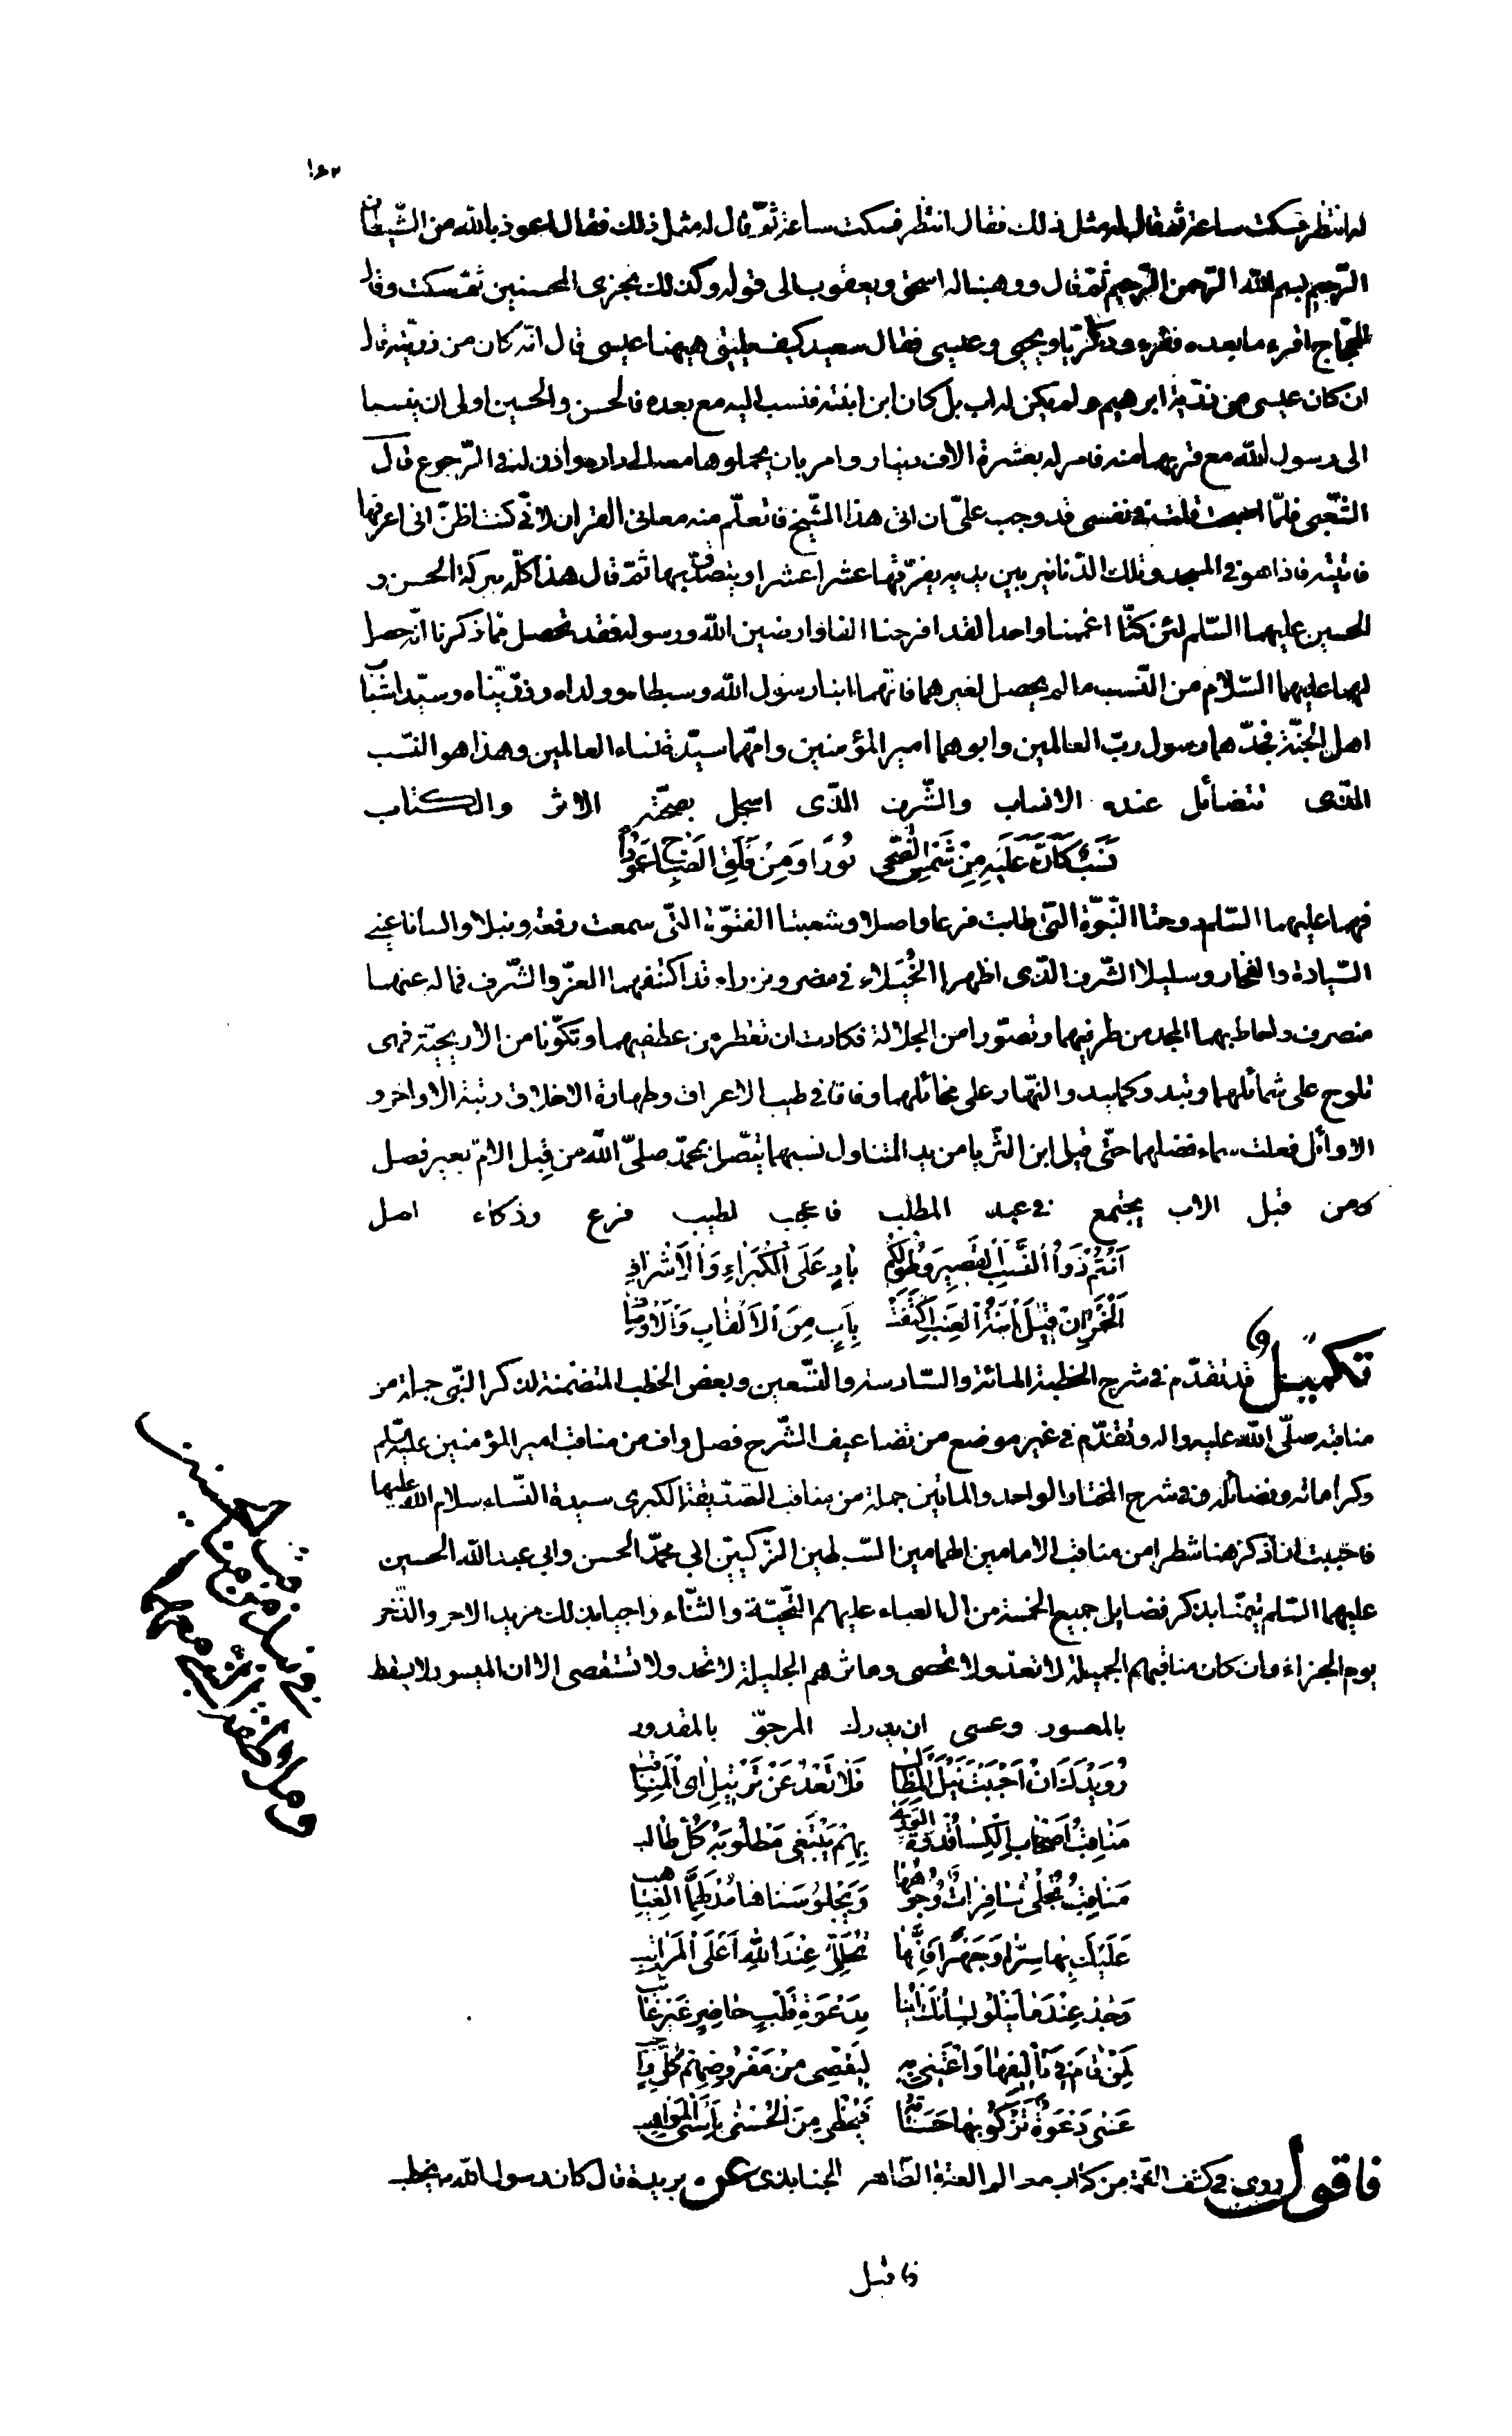 ١٥٢
له انتظر فسكت ساعة ثم قال له مثل ذلك فقال انتظر فسكت ساعة ثمّ قال له مثل ذلك فقال اعوذ بالله من الشّيطان
الرّجيم بسم الله الرّحمن الرّحيم ثمّ قال ووهبنا له اسحق ويعقوب الى قوله وكذلك نجزى المحسنين ثمّ سكت وقال
للحجّاج اقرء ما بعده فقرء وزكريّا ويحيى وعيسى فقال سعيد كيف يليق هيهنا عيسى قال انّه كان من ذرّيّته قال
ان كان عيسى من ذرّية ابرهيم ولم يكن له اب بل كان ابن ابنته فنسب اليه مع بعده فالحسن والحسين اولى ان ينسبا
الى رسول الله مع قربهما منه فامر له بعشرة الاف دينار وامر بان يحملوها معه الى داره واذن له فى الرّجوع قال
الشّعبى فلمّا اصبحت قلت فى نفسى قد وجب علىّ ان اتى هذا الشّيخ فاتعلّم منه معانى القران لانّى كنت اظنّ انى اعرفها
فاتيته فاذا هو فى المسجد وتلك الدّنانير بين يديه يفرّقها عشرا عشرا ويتصدّق بها ثمّ قال هذا كلّه ببركة الحسن و
الحسين عليهما السّلم لئن كنّا اغممنا واحدا لقد افرحنا الفا وارضينا الله ورسوله فقد تحصل ممّا ذكرنا انّه حصل
لهما عليهما السّلام من النّسب ما لم يحصل لغيرهما فانّهما ابنا رسول الله وسبطاه وولداه وذرّيّتاه وسيّدا شباب
اهل الجنّة فجدّهما رسول ربّ العالمين وابوهما امير المؤمنين وامّهما سيّدة نساء العالمين وهذا هو النّسب
الّذى تتضائل عنده الانساب والشّرف الّذى اسجل بصحّته الاثر والكتاب
نَسَبٌ كَاَنَّ عَلَيْهِ مِنْ شَمْسِ الضُّحٰى نُورًا وَمِنْ فَلَقِ الصَّبٰاحِ عَمُودًا
فهما عليهما السّلم دوحتا النّبوّة الّتى طابت فرعا واصلا وشعبتا الفتوّة الّتى سمعت رفعة ونبلا وانسانا عينى
السّيادة والفخار وسليلا الشّرف الّذى اظهر الخُيَلاء فى مضر ونزار قد اكتنفهما العزّ والشّرف فما له عنهما
منصرف واحاط بهما المجد من طرفيهما وتصوّرا من الجلالة فكادت ان تقطر من عطفيهما وتكوّنا من الاريحيّة فهى
تلوح على شمائلهما وتبدو كما يبدو النّهار على مخائلهما وفاقا فى طيب الاعراق وطهارة الاخلاق رتبة الاواخر و
الاوائل فعلت سماء فضلهما حتّى قيل اين الثّريا من يد المتناول نسبهما يتّصل بمحمّد صلّى الله من قِبل الام بغير فصل
ومن قبل الاب يجتمع فى عبد المطّلب فاعجب لطيب فرع وذكاء اصل
اَنْتُمْ ذَوُوا النَّسَبِ الْقَصِيرِ وَطُولُكُمْ بٰادٍ عَلَى الْكُبَرٰاءِ وَالْاَشْرٰافِ
اَلْخَمْرُ اِنْ قِيلَ ابْنَةُ الْعِنَبِ اكْتَفَتْ بِاَبٍ مِنَ الْاَلْقٰابِ وَالْاَوْصٰافِ
تكميل قد تقدّم فى شرح الخطبة المائة والسّادسة والتّسعين وبعض الخطب المتضمّنة لذكر النّبى جملة من
مناقبه صلّى الله عليه واله وتقدّم فى غير موضع من تضاعيف الشّرح فصل واف من مناقب امير المؤمنين عليه السّلم
وكراماته وفضائله وفى شرح المختار الواحد والماتين جملة من مناقب الصّدّيقة الكبرى سيدة النّساء سلام الله عليها
فاحببت ان اذكر هنا شطرا من مناقب الامامين الهمامين السّبطين الزّكيّين ابى محمّد الحسن وابى عبد الله الحسين
عليهما السّلم تيمّنا بذكر فضايل جميع الخمسة من ال العباء عليهم التّحيّة والثّناء راجيا بذلك مزيد الاجر والذّخر
يوم الجزاء وان كان مناقبهم الجميلة لا تعدّ ولا تحصى وماثرهم الجليلة لا تحد ولا تستقصى الا ان الميسور لا يسقط
بالمعسور وعسى ان يدرك المرجوّ بالمقدور
رُوَيْدَكَ اِنْ اَحْبَبْتَ نَيْلَ الْمَطٰالِبِ فَلٰا تَعْدُ عَنْ تَرْتِيلِ اٰىِ الْمَنٰاقِبِ
مَنٰاقِبُ اَصْحٰابِ الْكِسٰاءِ قُدْوَةُ الْوَرٰى بِهِمْ يَبْتَغِى مَطْلُوبَهُ كُلُّ طٰالِبِ
مَنٰاقِبُ تُجْلٰى سٰافِرٰاتٍ وُجُوهُهٰا وَيَجْلُو سَنٰاهٰا مُدْلَهِمَّ الْغَيٰاهِبِ
عَلَيْكَ بِهٰا سِرًّا وَجَهْرًا فَاِنَّهٰا تُحِلُّكَ عِنْدَ اللهِ اَعْلَى الْمَرٰاتِبِ
وَخُذْ عِنْدَمٰا يَتْلُو لِسٰانُكَ اٰيَهٰا بِدَعْوَةِ قَلْبٍ حٰاضِرٍ غَيْرِ غٰائِبِ
لِمَنْ قٰامَ فِى تَاْلِيفِهٰا وَاعْتَنٰى بِهِ لِيَقْضِىَ مِنْ مَفْرُوضِهٰا كُلَّ وٰاجِبِ
عَسٰى دَعْوَةٌ تَزْكُو بِهٰا حَسَنٰاتُهُ فَيَحْظٰى مِنَ الْحُسْنٰى بِاَسْنَى الْمَوٰاهِبِ
فاقول روى فى كشف الغمّة من كتاب معالم العترة الطّاهرة الجنابذى عن بريدة قال كان رسول الله يخطب
فاقبل